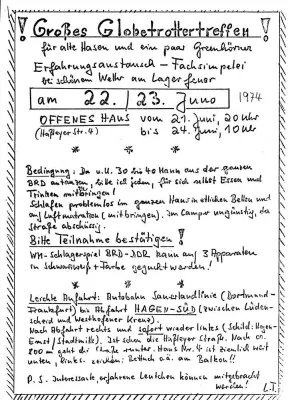 ! Großes Globetrottertreffen !
für alte Hasen und ein paar Greenhörner
Erfahrungsaustausch – Fachsimpelei
bei schönem Wetter am Lagerfeuer
am 22. / 23. Juno 1974
OFFENES HAUS vom 21. Juni, 20 Uhr
(Haßleyer Str. 4) bis 24. Juni, 10 Uhr
* * *
Bedingung: Da u. U. 30 bis 40 Mann aus der ganzen
BRD antanzen, bitte ich jeden, für sich selbst Essen und
Trinken mitbringen!
Schlafen problemlos im ganzen Haus in etlichen Betten und
auf Luftmatratzen (mitbringen). Im Camper ungünstig, da
Straße abschüssig.
Bitte Teilnahme bestätigen!
WM-Schlagerspiel BRD-DDR kann auf 3 Apparaten
in schwarzweiß + Farbe geguckt werden!
* * *
Leichte Anfahrt: Autobahn Sauerlandlinie (Dortmund-
Frankfurt) bis Abfahrt HAGEN-SÜD (zwischen Lüden-
scheid und Westhofener Kreuz).
Nach Abfahrt rechts und sofort wieder links (Schild: Hagen-
Emst/Stadtmitte). Ist schon die Haßleyer Straße. Nach ca.
800 m geht die Straße runter. Haus Nr. 4 ist ziemlich weit
unten, links.
am Balkon!!
P.S. Interessante, erfahrene Leutchen können mitgebracht
werden! L.T.